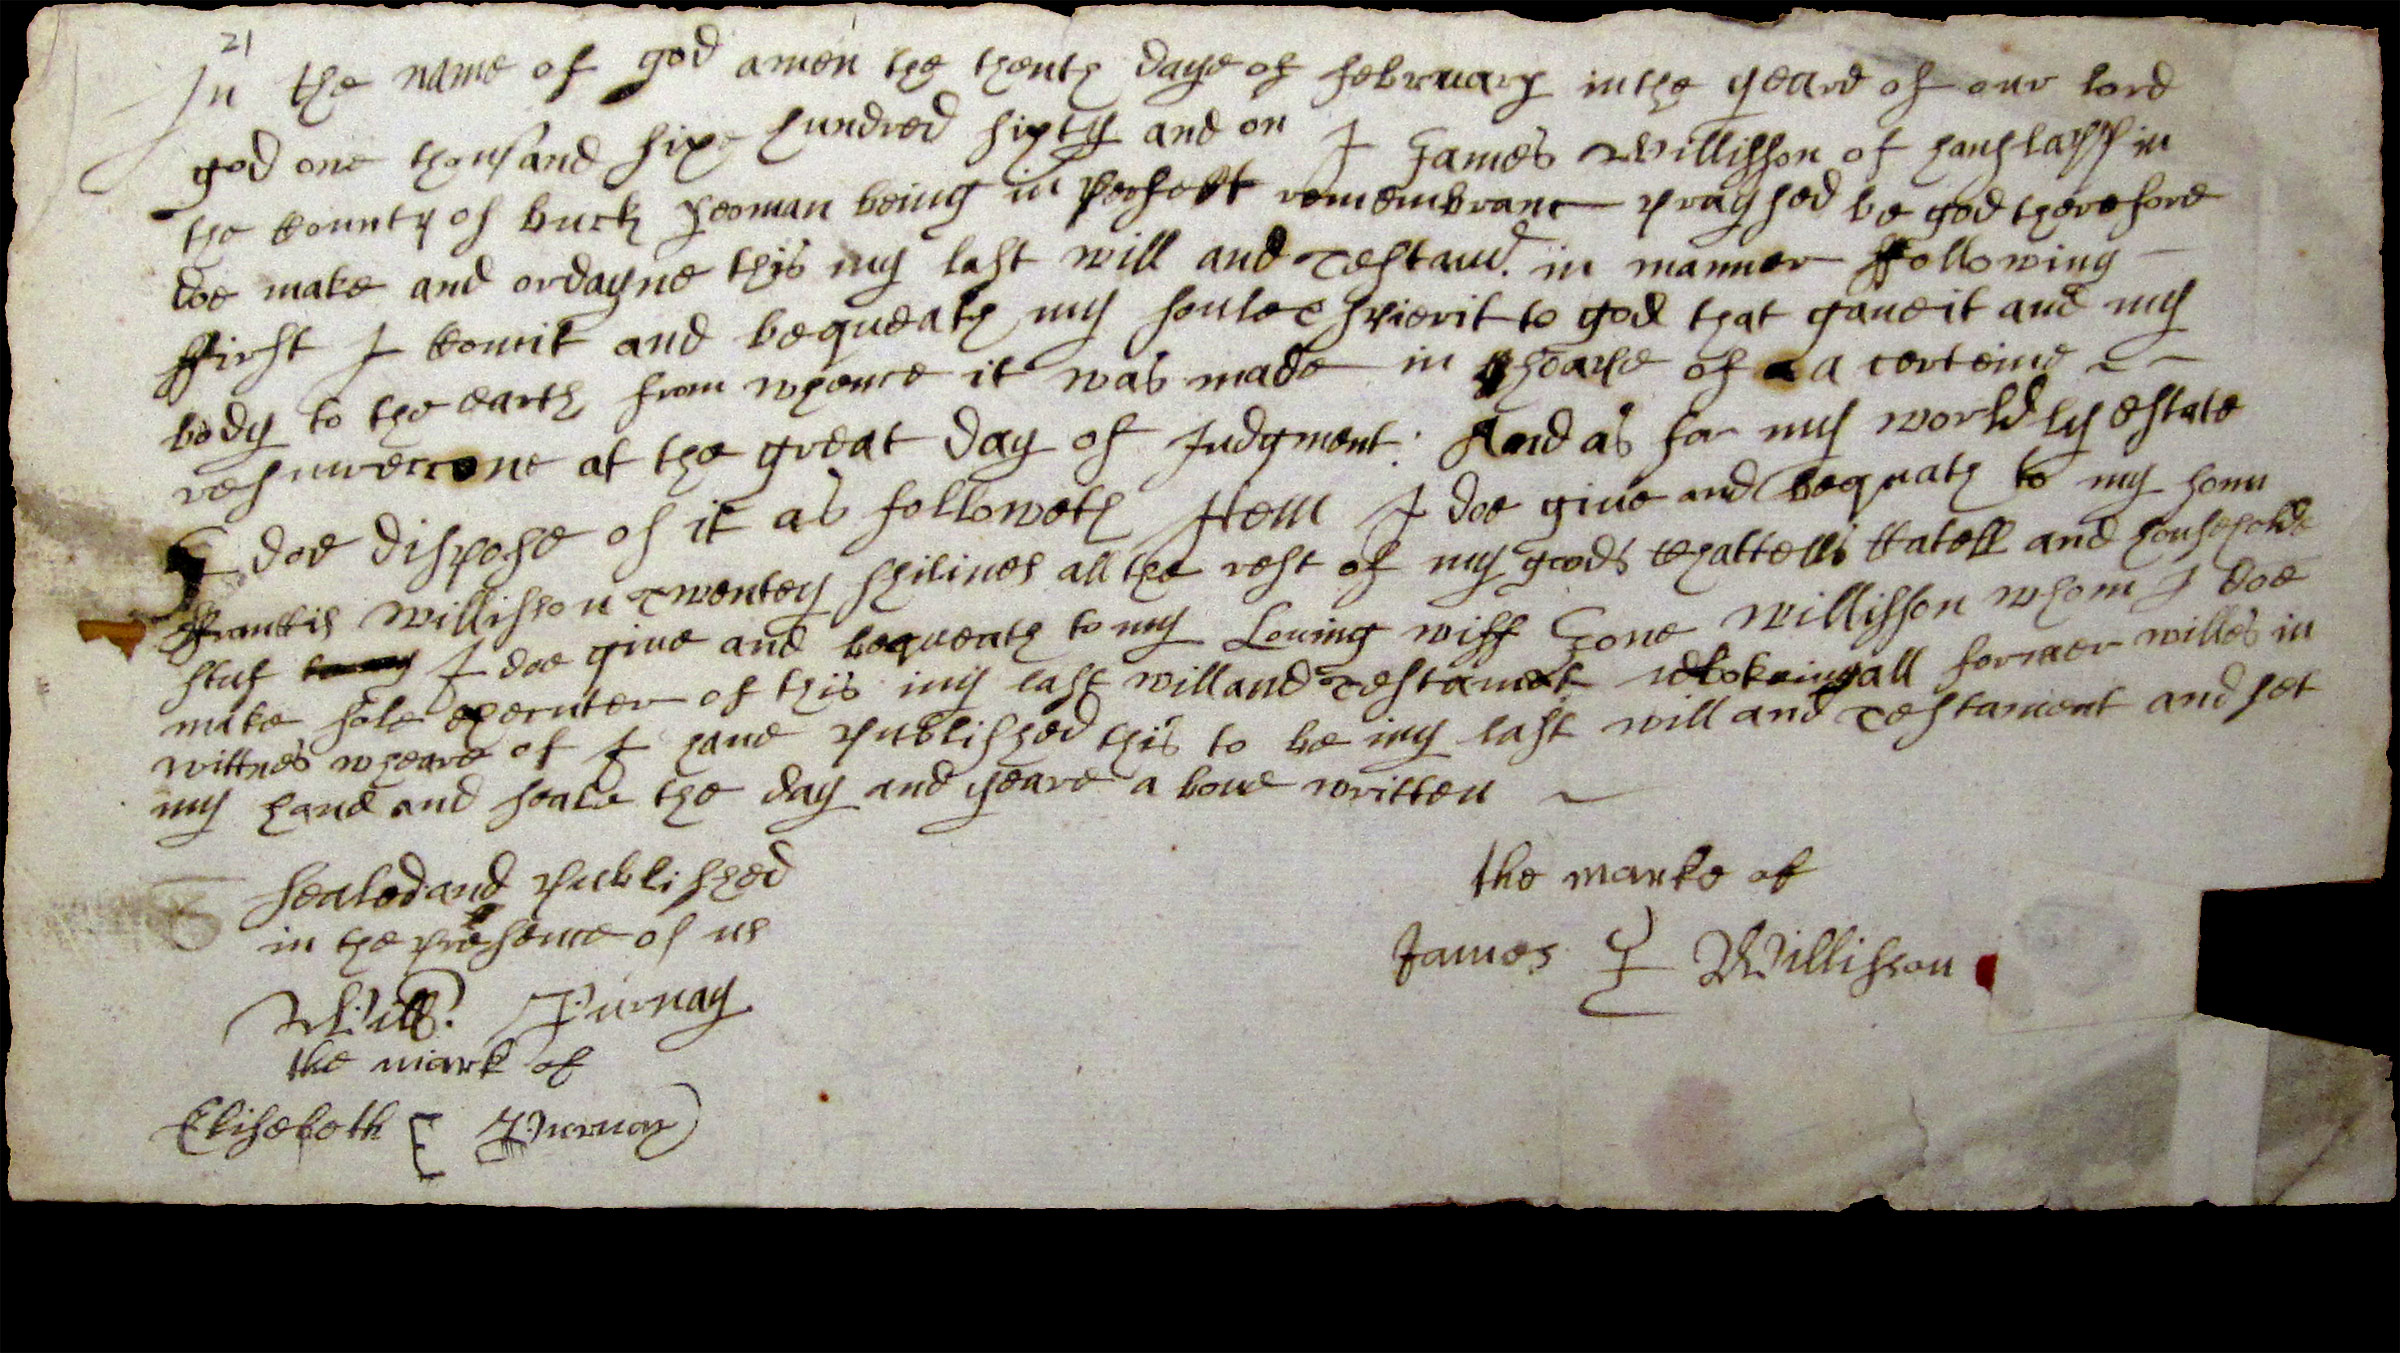 21
In the name of god amen the tenth daye of february in the yeare of our lord
god one thousand sixe hundred sixty and on I James Willisson of hanslapp in
the County of buck yeoman being in perfect remembranc praysed be god therefore
doe make and ordayne this my last will and Testam. in manner ffollowing
ffirst I Comit and bequeath my soule & spierit to god that gaue it and my
body to the earth from whence it was made in of a certeine
resurreccone at the great day of Judgment. And as for my worldly estate
I doe dispose of it as followeth Item I doe giue and bequath to my sonn
ffranCis Willisson Twentey shilines all the rest of my goods Chattells Catell and househould
stuf I doe giue and bequeath to my Louing wiff Jone Willisson whom I doe
make sole executer of this my last will and Testament all former willes in
wittnes wheare of I haue published this to be my last will and Testament and set
my hand and seale the day and yeare a boue written
sealed and published
in the presence of us
Will. Purnay
the mark of
Elisebeth Purnay
the marke of
James Willisson